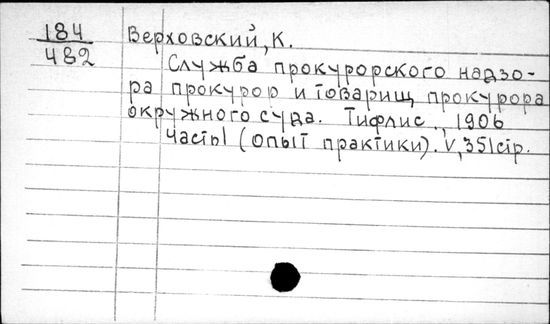 184
482
Верховский, К.
Служба прокурорского надзо-
ра прокурор и товарищ прокурора
окружного суда. Тифлис., 1906
Часть I (опыт практики). V, 351 стр.